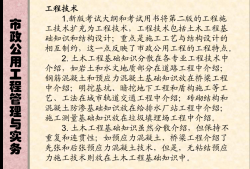 市政公用工程管理与实务
工程技术
1.新版考试大纲和考试用书将第二版的工程施
工技术扩充为工程技术。工程技术包括土木工程基
础知识和结构设计；重点是施工工艺与结构设计的
相互制约。这一点反映了市政公用工程的工程特点。
2.土木工程基础知识分散在各专业工程技术中
介绍，如岩土和水文地质部分在道路工程中介绍；
钢筋混凝土和预应力混凝土基础知识在桥梁工程
中介绍；明挖基坑、暗挖地下工程和盾构施工等工
艺、工法在城市轨道交通工程中介绍；砖砌结构和
混凝土防渗基础知识在给排水厂站工程中介绍；
施工测量基础知识在垃圾填埋场工程中介绍。
3.土木工程基础知识虽然分散介绍，但保持不
重复和连贯性；如预应力混凝土，桥梁工程介绍了
先张和后张预应力混凝土技术。但是，无粘结预应
力施工技术则歧在土木工程基础知识中。